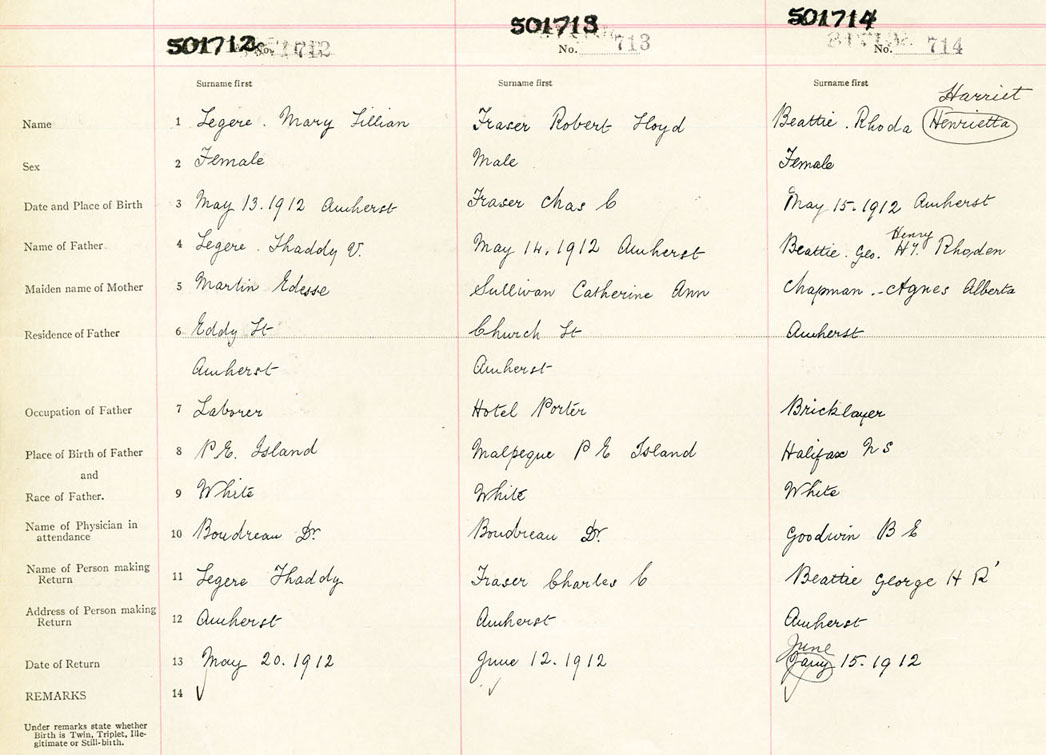 501712 501713 501714
No. 1712 No. 713 No. 714
Surname first Surname first Surname first
Harriet
Name 1 Legere. Mary Lillian Fraser Robert Lloyd Beattie. Rhoda Henrietta
Sex 2 Female Male Female
Date and Place of Birth 3 May 13. 1912 Amherst Fraser Chas C May 15. 1912 Amherst
Henry
Name of Father 4 Legere. Thaddy V. May 14, 1912 Amherst Beattie. Geo. Hy. Rhoden
Maiden name of Mother 5 Martin Edesse Sullivan Catherine Ann Chapman - Agnes Alberta
Residence of Father 6 Eddy St Church St Amherst
Amherst Amherst
Occupation of Father 7 Laborer Hotel Porter Bricklayer
Place of Birth of Father 8 P.E. Island Malpeque P E Island Halifax N S
and
Race of Father. 9 White White White
Name of Physician in
attendance 10 Boudreau Dr. Boudreau Dr. Goodwin B E
Name of Person making
Return 11 Legere Thaddy Fraser Charles C Beattie George H R
Address of Person making
Return 12 Amherst Amherst Amherst
June
Date of Return 13 May 20. 1912 June 12. 1912 Jany 15. 1912
REMARKS 14
Under remarks state whether
Birth is Twin, Triplet, Ille-
gitimate or Still-birth.